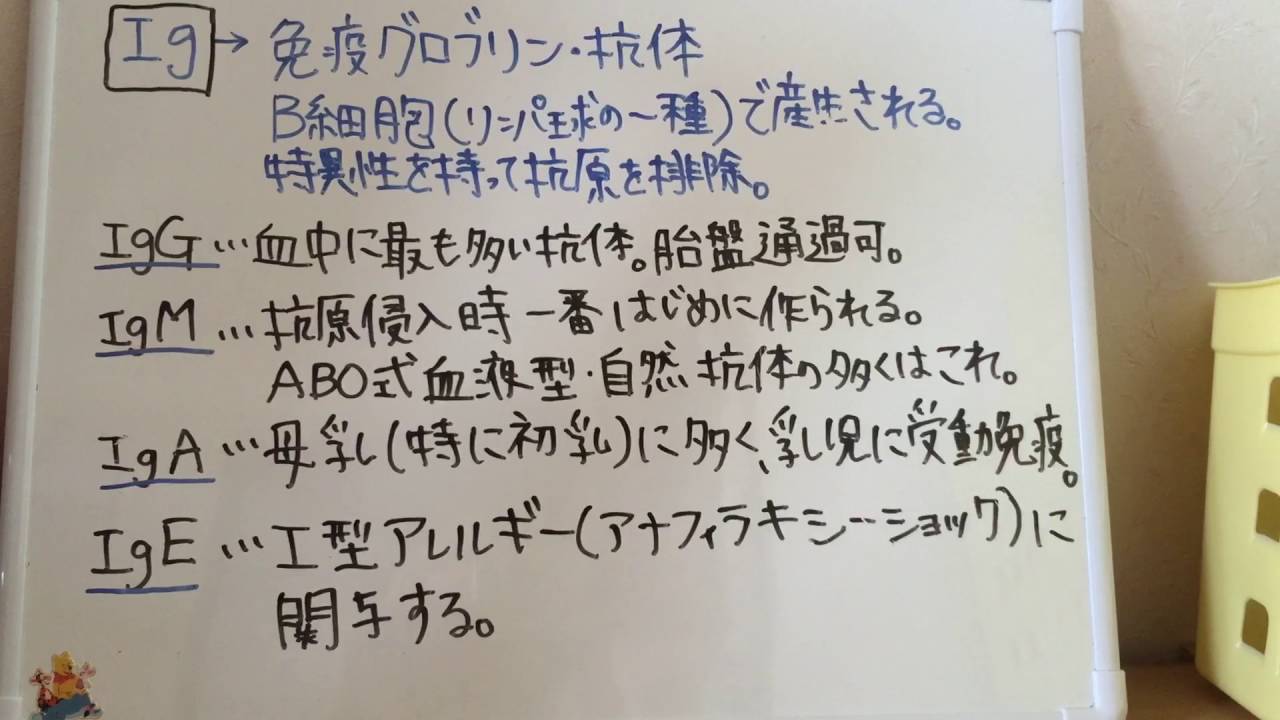 Ig→免疫グロブリン・抗体
B細胞(リンパ球の一種)で産生される。
特異性を持って抗原を排除。
IgG…血中に最も多い抗体。胎盤通過可。
IgM…抗原侵入時一番はじめに作られる。
ABO式血液型・自然抗体の多くはこれ。
IgA…母乳(特に初乳)に多く、乳児に受動免疫。
IgE…I型アレルギー(アナフィラキシーショック)に
関与する。